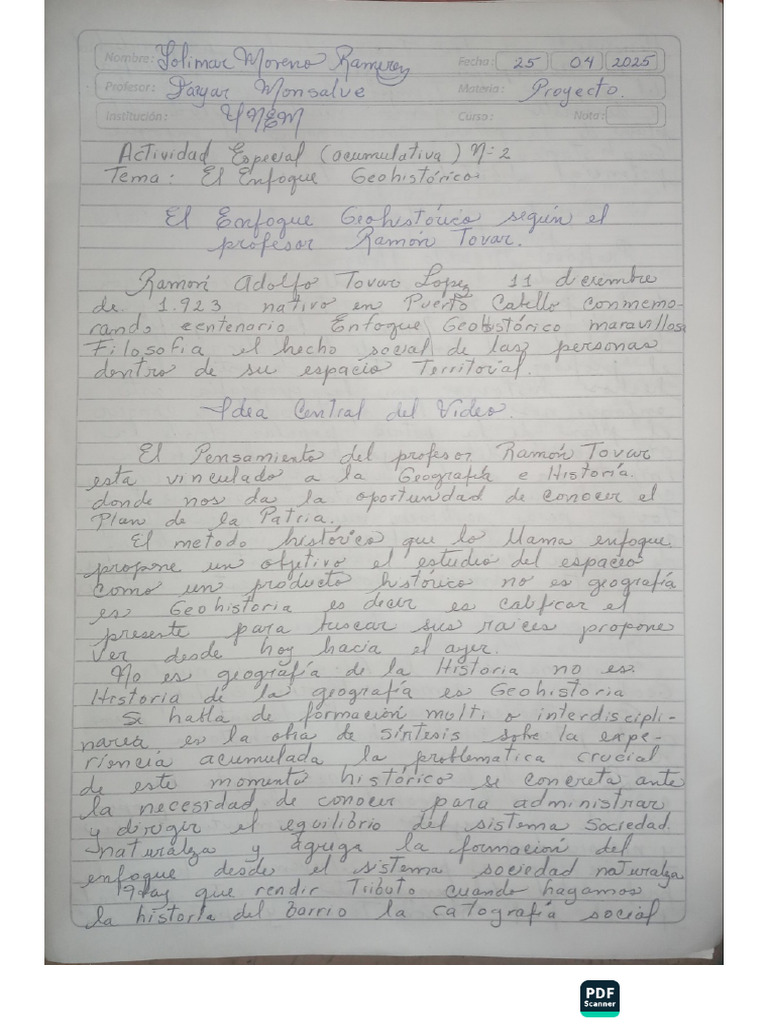 Nombre: Yolimar Moreno Ramirez Fecha: 25 04 2025
Profesor: Dayar Monsalve Materia: Proyecto.
Institución: UNEM Curso: Nota:
Actividad Especial (acumulativa) N: 2
Tema: El Enfoque Geohistórico
El Enfoque Geohistórico según el
profesor Ramón Tovar.
Ramón Adolfo Tovar Lopez 11 diciembre
de 1.923 nativo en Puerto Cabello conmemo-
rando centenario Enfoque Geohistórico maravillosa
Filosofia el hecho social de las personas
dentro de su espacio Territorial.
Idea Central del Video.
El Pensamiento del profesor Ramón Tovar
esta vinculado a la Geografía e Historía.
donde nos da la oportunidad de conocer el
Plan de la Patria.
El metodo histórico que lo llama enfoque
propone un objetivo el estudio del espacio
como un producto histórico no es geografía
es Geohistoria es decir es calificar el
presente para buscar sus raices propone
ver desde hoy hacia el ayer.
No es geografía de la Historia no es
Historia de la geografía es Geohistoria
Se habla de formación multi o interdiscipli-
narea es la obra de síntesis sobre la expe-
riencia acumulada la problematica crucial
de este momento histórico se concreta ante
la necesidad de conocer para administrar
y dirigir el equilibrio del sistema Sociedad
naturalza y agrega la formación del
enfoque desde el sistema sociedad naturalza
Hay que rendir Tributo cuando hagamos
la historia del Barrio la catografía social
PDF
Scanner